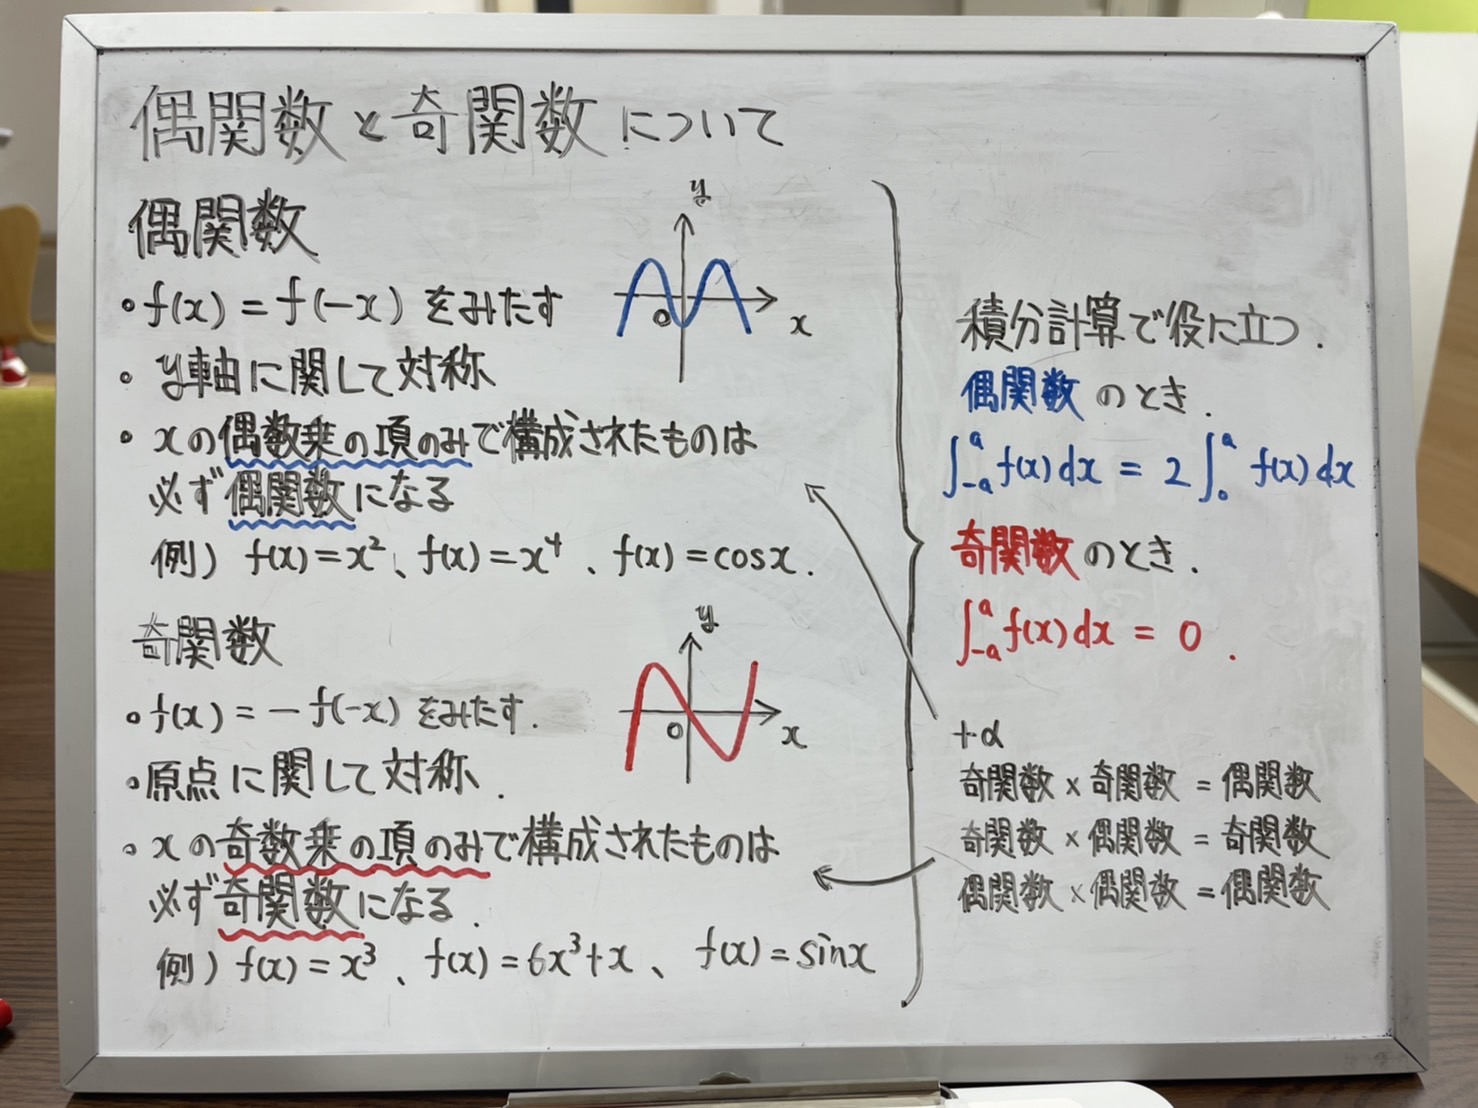 偶関数と奇関数について
偶関数
• f(x) = f(−x) をみたす
• y軸に関して対称
• xの偶数乗の項のみで構成されたものは
必ず偶関数になる
例) f(x) = x²、f(x) = x⁴、f(x) = cosx.
y
x
O
奇関数
• f(x) = −f(−x) をみたす.
• 原点に関して対称.
• xの奇数乗の項のみで構成されたものは
必ず奇関数になる.
例) f(x) = x³、f(x) = 6x³+x、f(x) = sinx
y
x
O
積分計算で役に立つ.
偶関数のとき.
∫₋ₐᵃ f(x)dx = 2∫₀ᵃ f(x)dx
奇関数のとき.
∫₋ₐᵃ f(x)dx = 0.
+α
奇関数 × 奇関数 = 偶関数
奇関数 × 偶関数 = 奇関数
偶関数 × 偶関数 = 偶関数